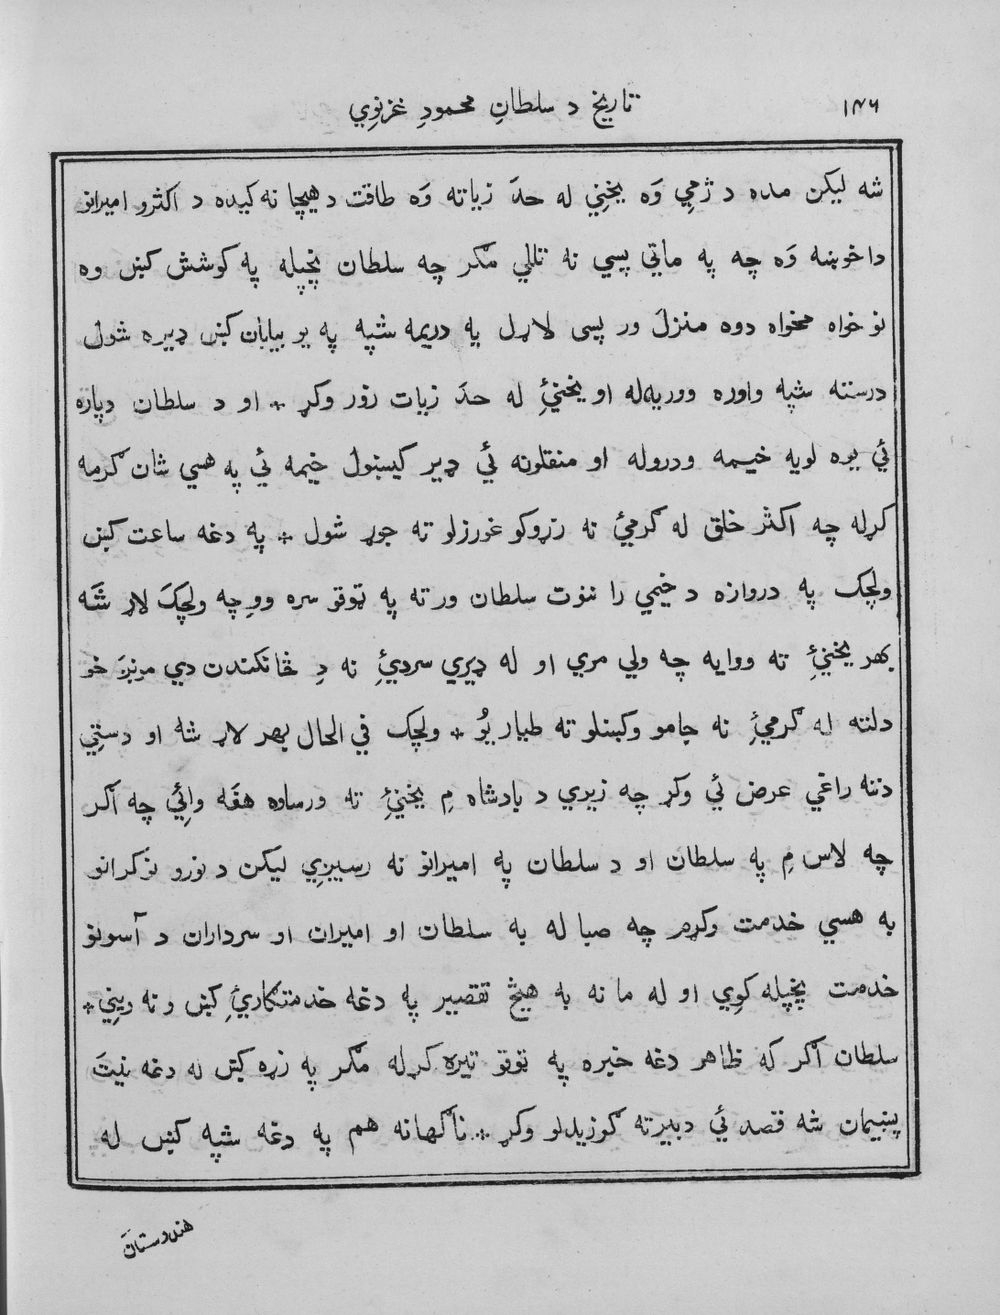 ۱۴۶ تاریخ د سلطانِ محمودِ غزنوِي
شه لیکن مده د ژمِي وَه یخنِي له حدَ زیاته وَه طاقت د هیچا نه کیده د اکثرو امیرانو
دا خوښه وَه چه په ماتي پسي نه تللي مګر چه سلطان پخپله په کوشش کښ وه
نو خواه مخواه دوه منزلَ ور پسی لاړل په دریمه شپه په یو بیابان کښ ډیره شول
درسته شپه واوره ووریدله او یخنئِ له حدَ زیات زور وکړ ٭ او د سلطان دپاره
ئي یوه لویه خیمه ودروله او منقلونه ئي ډیر کیښول خیمه ئي په هسي شان کرمه
کړله چه اکثر خلق له کرمئ نه زړوکو غورزلو ته جوړ شول ٭ په دغه ساعت کښ
ولچک په دروازه د خیمي را ننوت سلطان ورته په ټوقو سره ووِ چه ولچکَ لاړ شَه
بهر یخنئِ ته ووایه چه ولي مري او له ډیري سردئِ نه دِ ځانکندن دي مونږَ خو
دلته له کرمئِ نه جامو وکښلو ته طیار یُو ٭ ولچک في الحال بهر لاړ شه او دستِي
دننه راغي عرض ئي وکړ چه زیري د بادشاه مِ یخنئِ ته ورساوه هغَه وائِي چه اکر
چه لاس مِ په سلطان او د سلطان په امیرانو نه رسیږي لیکن د نورو نوکرانو
به هسي خدمت وکړم چه صبا له به سلطان او امیران او سرداران د آسونو
خدمت پخپله کوِي او له ما نه به هیڅ تقصیر په دغه خدمتکارئِ کښ و نه ویني ٭
سلطان اکر که ظاهر دغه خبره په ټوقو تیره کړله مکر په زړه کښ له دغه نیتَ
پښیمان شه قصد ئي دبیرته کورزیدلو وکړ ٭ ناکهانه هم په دغه شپه کښ له
هندوستان